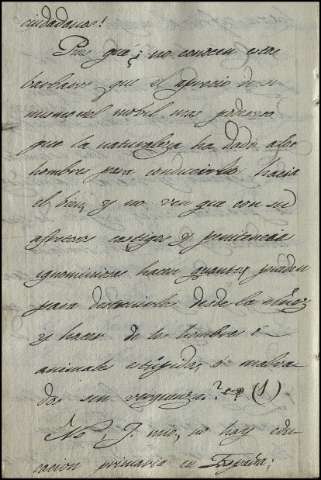 ciudadanos!
Pues que ¿no conocen esos
barbaros que el aprecio de si
mismo es el mobil mas poderoso
que la naturaleza ha dado a los
hombres para conducirlos hacia
el bien, y no ven que con sus
atroces castigos y penitencias
ignominiosas hacen cuanto pueden
para desde la niñez
y hacer de los hombres o
animales estupidos, o malva
dos sin verguenza? (1)
No, J. mio, no hay edu-
cacion primaria en España;